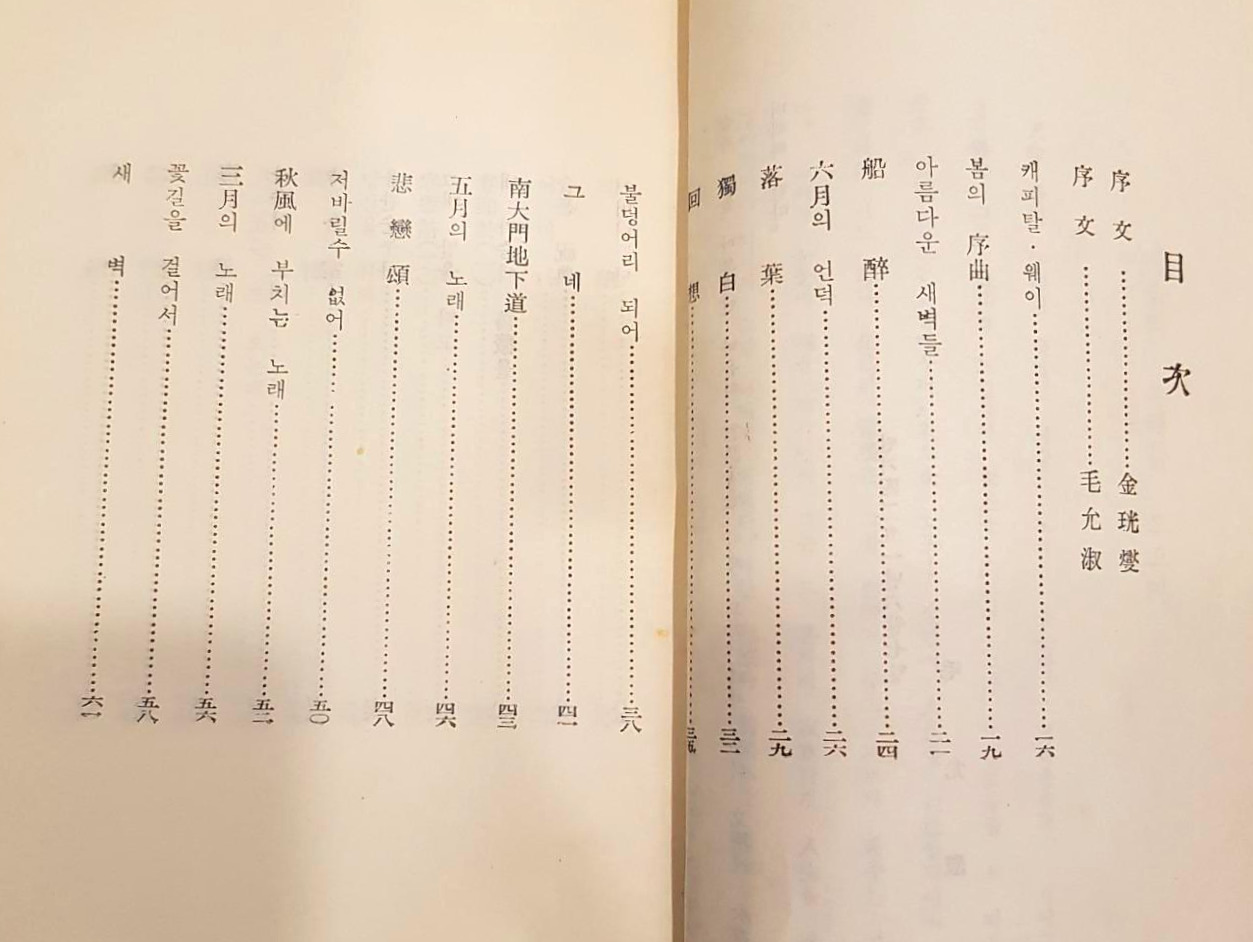 目 次
序文 …… 金珖燮
序文 …… 毛允淑
캐피탈·웨이 …… 一六
봄의 序曲 …… 一九
아름다운 새벽들 …… 二一
船醉 …… 二四
六月의 언덕 …… 二六
落葉 …… 二九
獨白 …… 三二
回想 …… 三五
불덩어리 되어 …… 三八
그네 …… 四一
南大門地下道 …… 四三
五月의 노래 …… 四六
悲戀頌 …… 四八
저바릴수 없어 …… 五〇
秋風에 부치는 노래 …… 五二
三月의 노래 …… 五六
꽃길을 걸어서 …… 五八
새벽 …… 六一